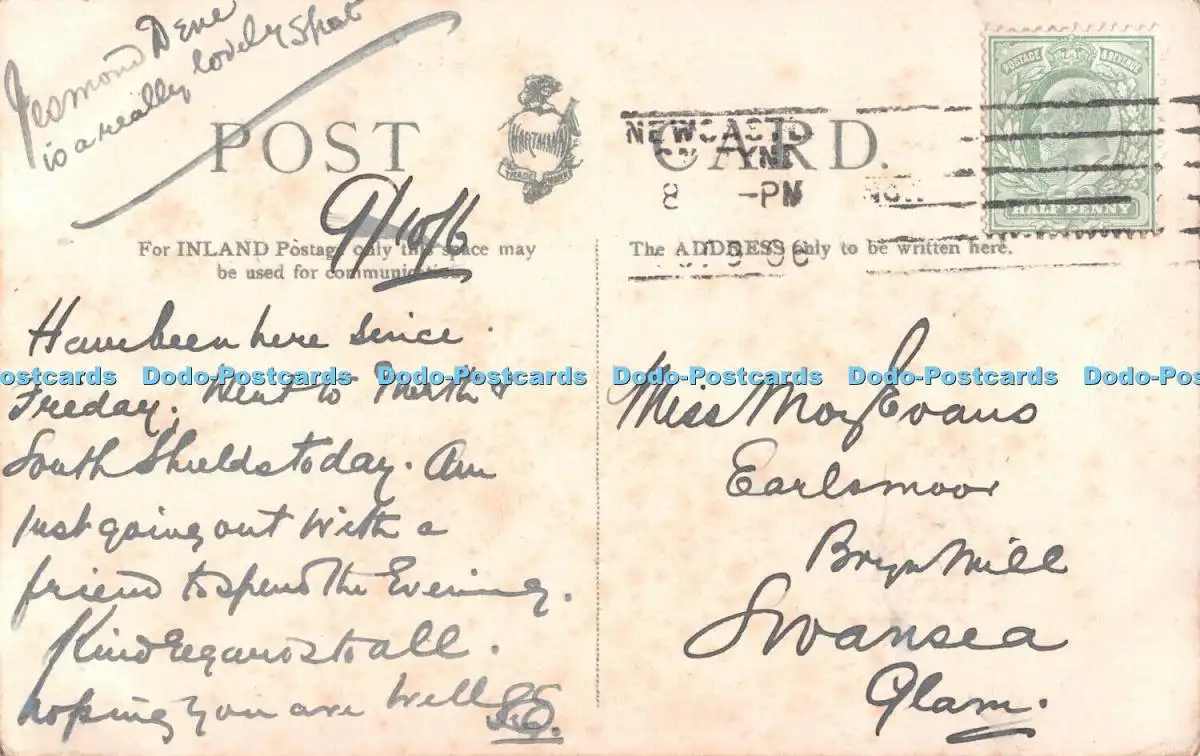 Jesmond Dene
is a really lovely spot
POST CARD.
HARTMANN
TRADE MARK
NEWCASTLE
ON TYNE
8 -PM
9 06
POSTAGE & REVENUE
HALF PENNY
9/10/6
For INLAND Postage only this space may
be used for communication.
The ADDRESS only to be written here.
Have been here since
Freday. Went to North &
South Shields today. Am
just going out with a
friend to spend the Evening.
Kind Regards to all.
hoping you are well
Miss May Evans
Earlsmoor
Bryn Mill
Swansea
Glam.
ostcards Dodo-Postcards Dodo-Postcards Dodo-Postcards Dodo-Postcards Dodo-Pos